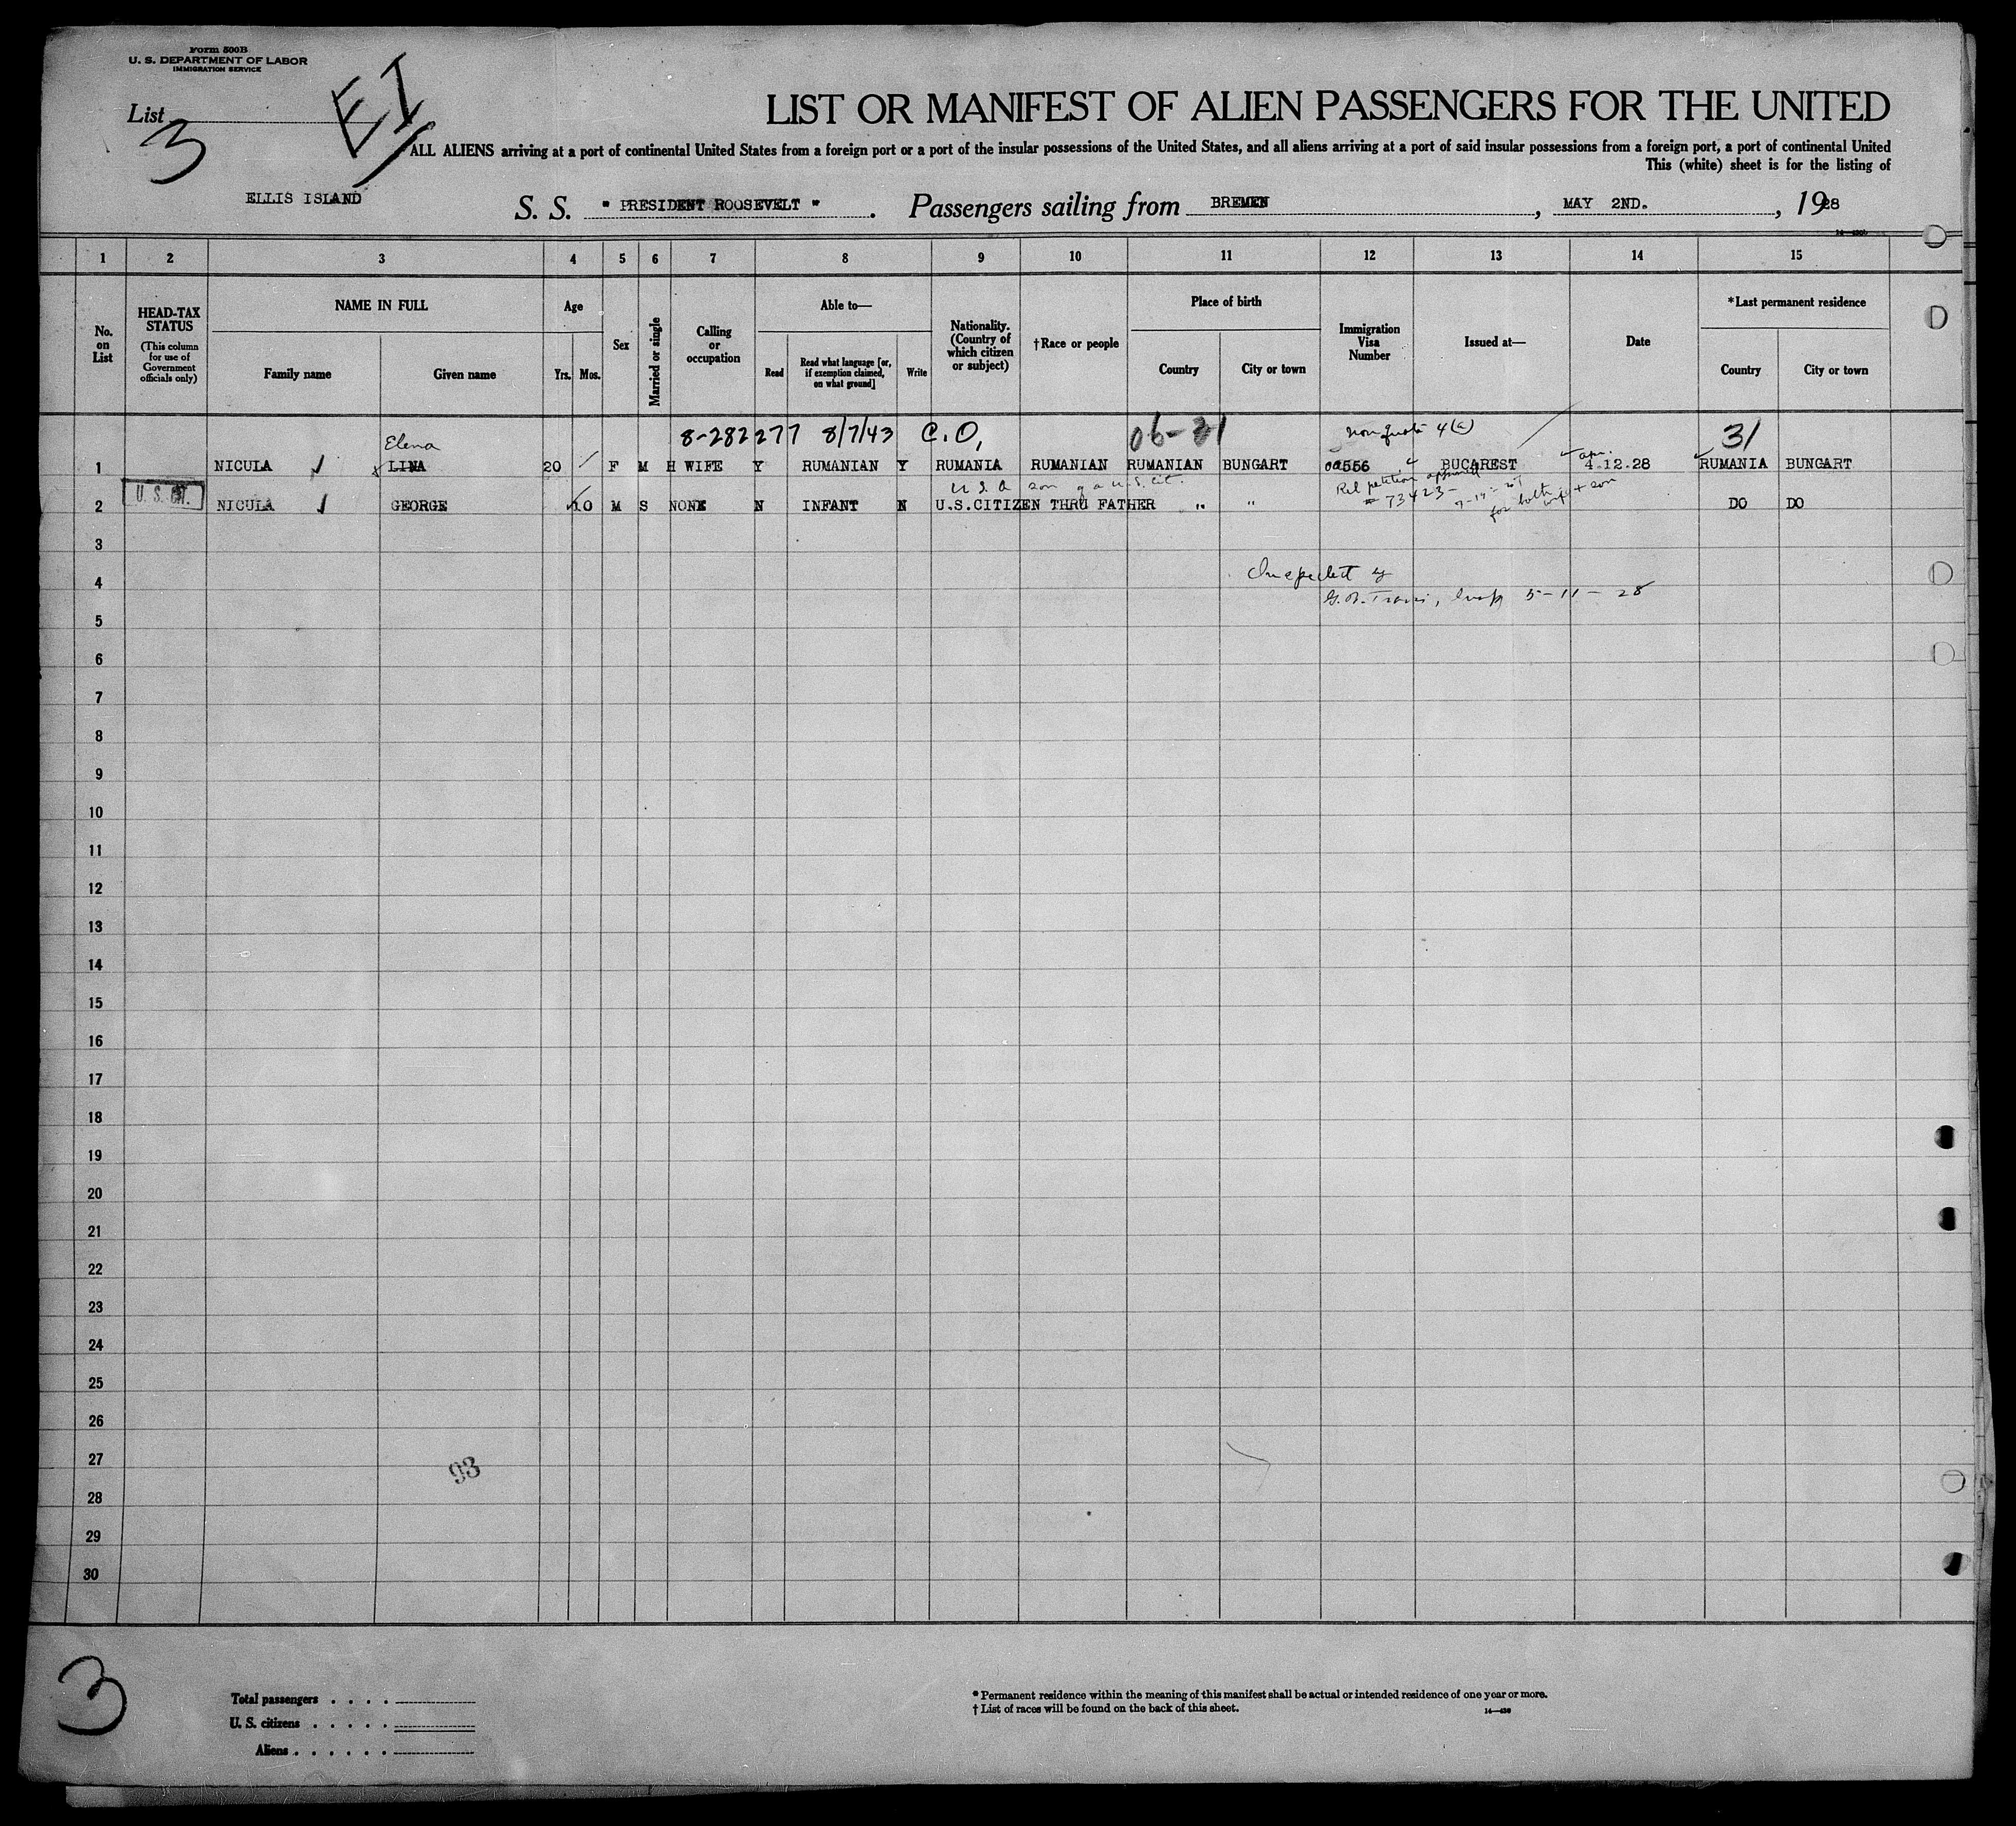 Form 500B
U. S. DEPARTMENT OF LABOR
IMMIGRATION SERVICE
List
3
EI
LIST OR MANIFEST OF ALIEN PASSENGERS FOR THE UNITED
ALL ALIENS arriving at a port of continental United States from a foreign port or a port of the insular possessions of the United States, and all aliens arriving at a port of said insular possessions from a foreign port, a port of continental United
This (white) sheet is for the listing of
ELLIS ISLAND S. S. " PRESIDENT ROOSEVELT " . Passengers sailing from BREMEN , MAY 2ND. , 1928
1 2 3 4 5 6 7 8 9 10 11 12 13 14 15
No. on List
HEAD-TAX STATUS
(This column for use of Government officials only)
NAME IN FULL
Family name Given name
Age
Yrs. Mos.
Sex
Married or single
Calling or occupation
Able to—
Read Read what language [or, if exemption claimed, on what ground] Write
Nationality. (Country of which citizen or subject)
†Race or people
Place of birth
Country City or town
Immigration Visa Number
Issued at—
Date
*Last permanent residence
Country City or town
Elena 8-282277 8/7/43 C.O, 06-31 Nonquota 4(a) 31
1 NICULA LINA 20 F M H WIFE Y RUMANIAN Y RUMANIA RUMANIAN RUMANIAN BUNGART 556 BUCAREST 4.12.28 RUMANIA BUNGART
apr.
U. S. CIT.
U S A son of a U.S. cit.
Rel petition approved
# 73423
for both wife + son
2 NICULA GEORGE 10 M S NONE N INFANT N U.S.CITIZEN THRU FATHER " " DO DO
3
4 Inspected by
G. B. Travis, Insp 5-11-28
5
6
7
8
9
10
11
12
13
14
15
16
17
18
19
20
21
22
23
24
25
26
27
93
28
29
30
3
Total passengers . . . .
U. S. citizens . . . . .
Aliens . . . . . .
* Permanent residence within the meaning of this manifest shall be actual or intended residence of one year or more.
† List of races will be found on the back of this sheet.